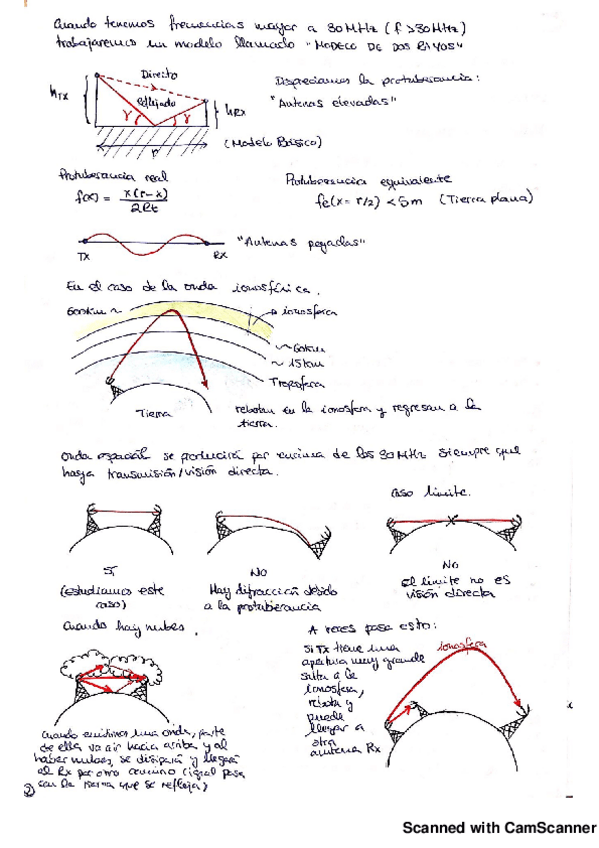 Cuando tenemos frecuencias mayor a 30MHz (f >30MHz)
trabajaremos un modelo llamado "MODELO DE DOS RAYOS"
Directo
hTX
Reflejado
hRX
γ
γ
r
Despreciamos la protuberancia:
"Antenas elevadas"
(Modelo Básico)
Protuberancia real
f(x) = x(r-x) / 2Rt
Protuberancia equivalente
fe(x= r/2) < 5m (Tierra plana)
TX
RX
"Antenas pegadas"
En el caso de la onda ionosférica.
600km ~
ionosfera
~60km
~ 15km
Troposfera
Tierra
rebotan en la ionosfera y regresan a la
tierra.
Onda espacial se producirá por encima de los 30MHz siempre que
haya transmisión/visión directa.
caso límite.
Sí
(estudiamos este
caso)
NO
Hay difracción debido
a la protuberancia
No
el límite no es
visión directa
Cuando hay nubes.
A veces pasa esto:
Si Tx tiene una
apertura muy grande
a la
ionosfera,
rebota y
puede
llegar a
otra
antena Rx
ionosfera
Cuando emitimos una onda, parte
de ella va a ir hacia arriba y al
haber nubes, se disipará y llegará
al Rx por otro camino (igual pasa
con la tierra que se refleja)
Scanned with CamScanner